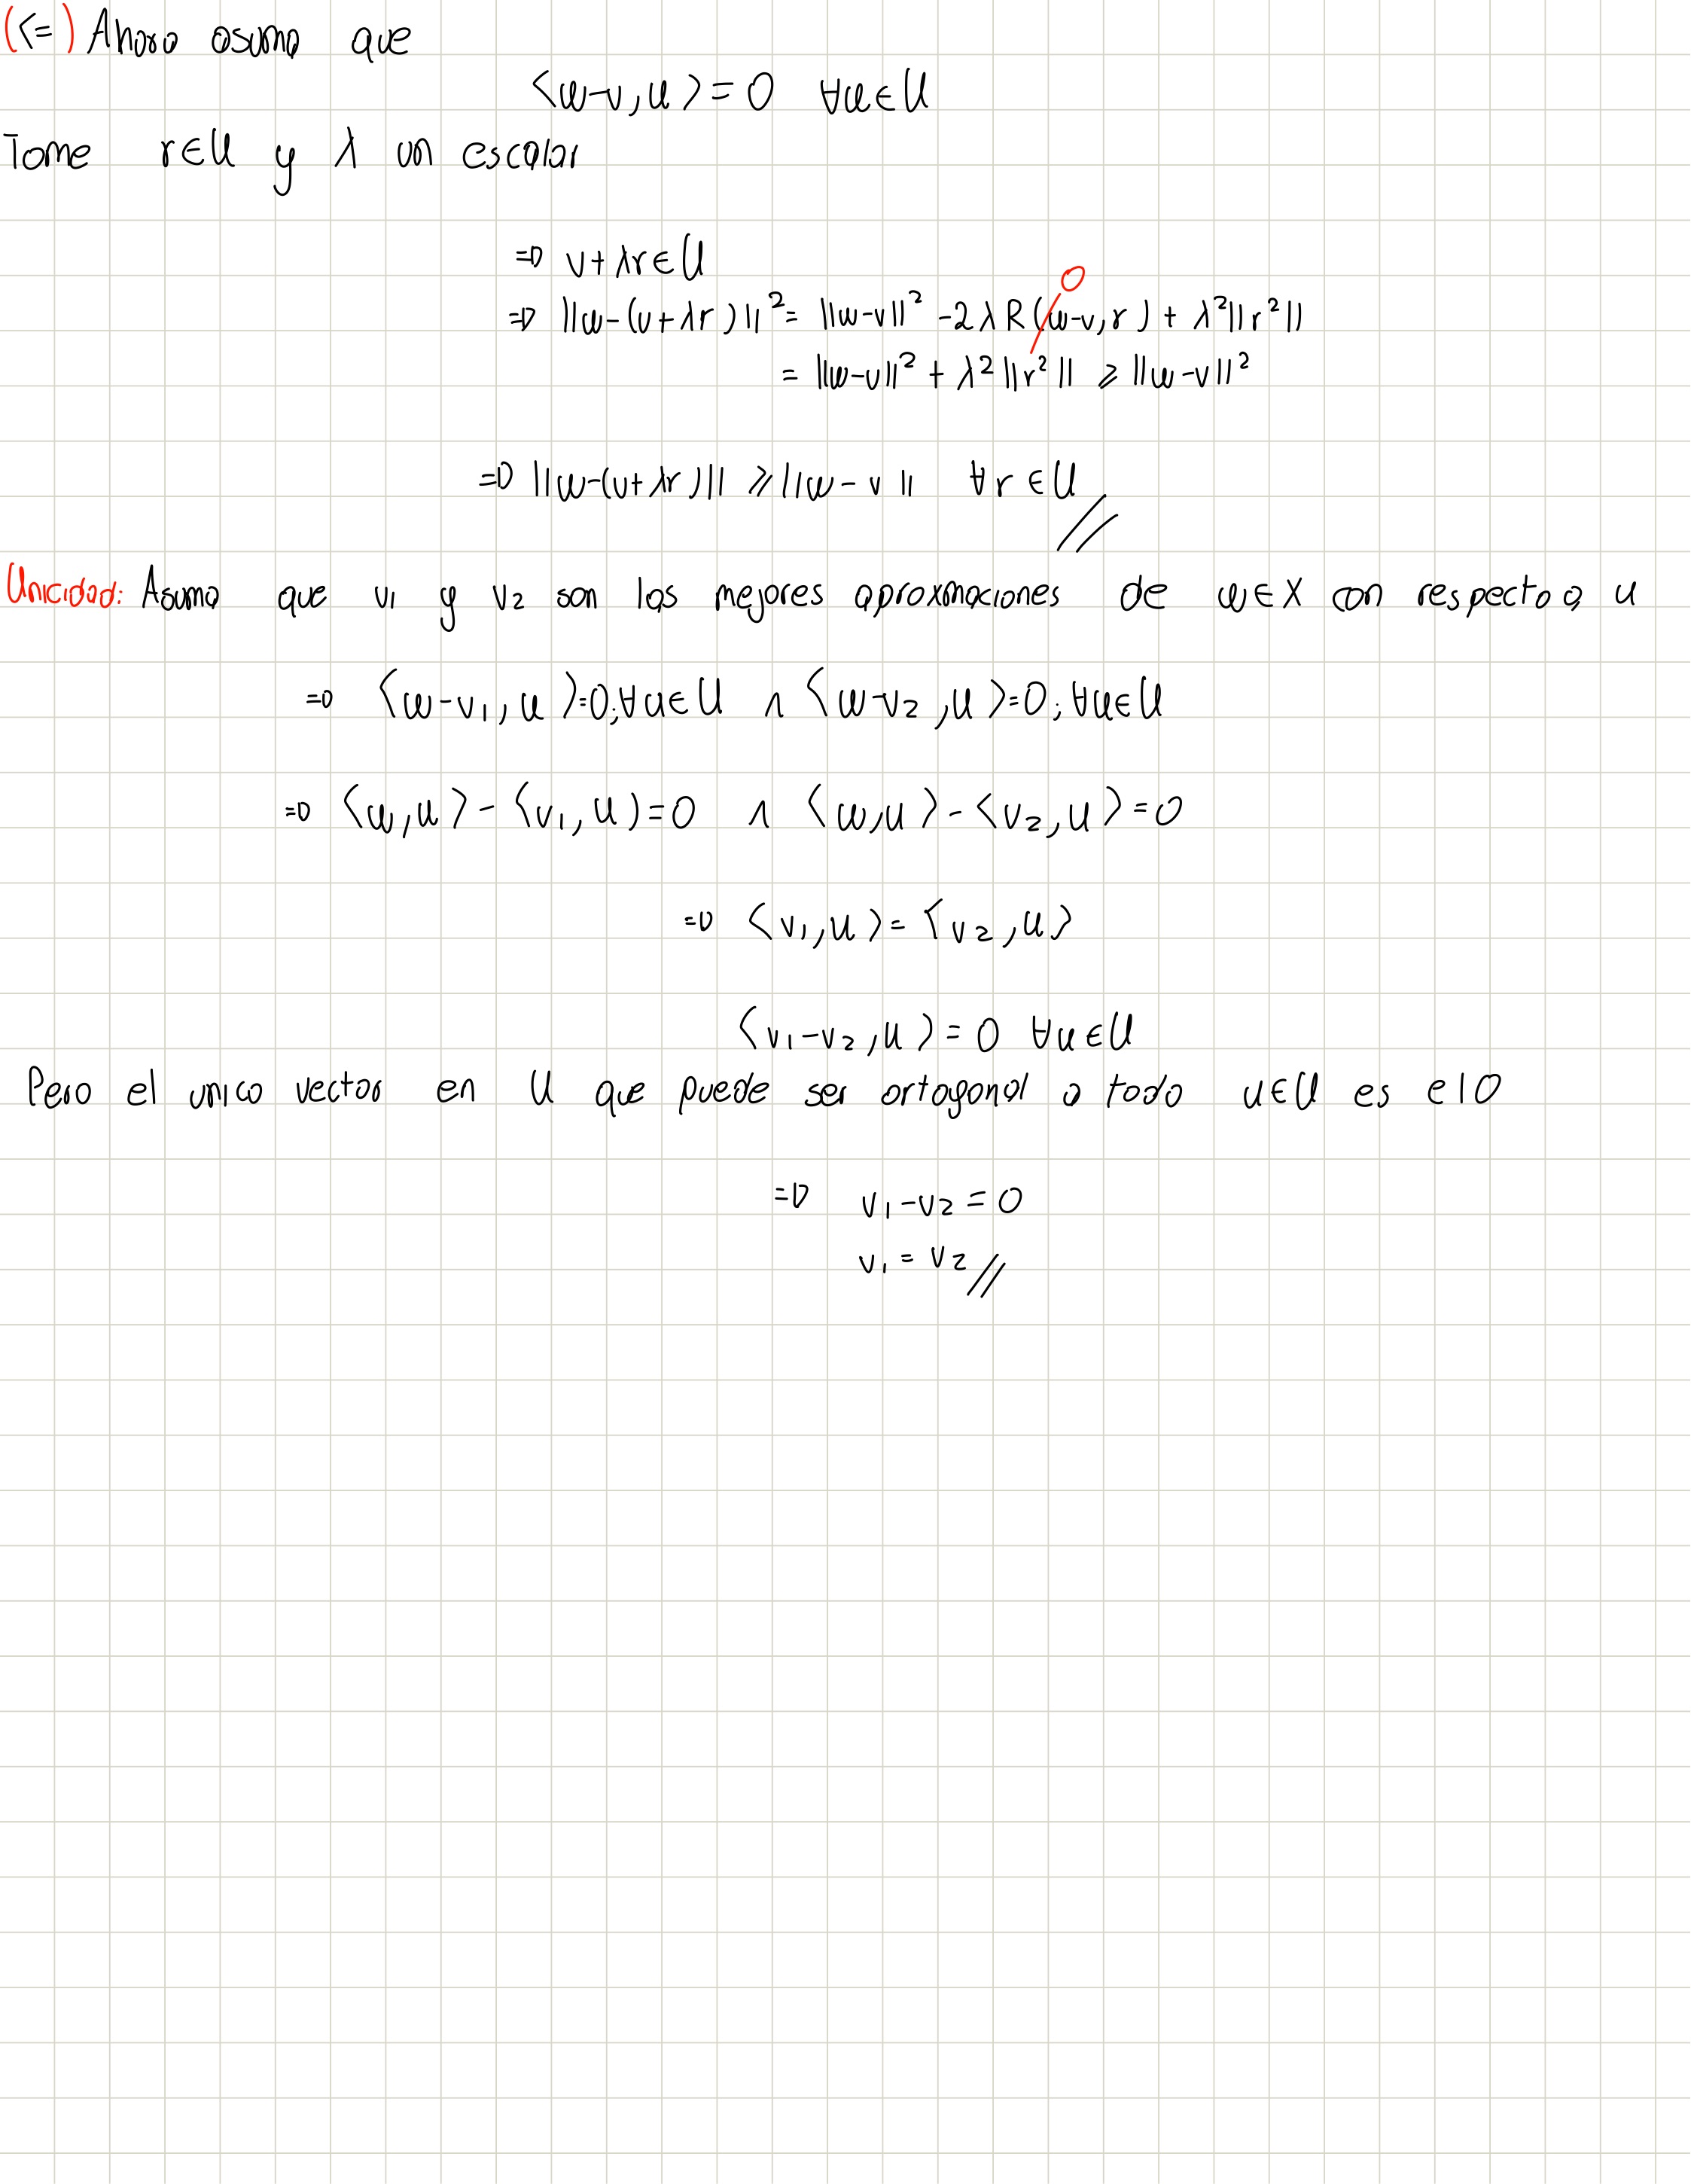 (<=) Ahora asuma que
⟨w-v,u⟩=0 ∀u∈U
Tome r∈U y λ un escalar
=> v+λr∈U
0
=> ||w-(v+λr)||²= ||w-v||² -2λR(w-v,r) + λ²||r²||
= ||w-v||² + λ²||r²|| ≥ ||w-v||²
=> ||w-(v+λr)|| ≥ ||w-v|| ∀r∈U //
Unicidad: Asuma que v₁ y v₂ son las mejores aproxmaciones de w∈X con respecto a u
=> ⟨w-v₁,u⟩=0;∀u∈U ∧ ⟨w-v₂,u⟩=0;∀u∈U
=> ⟨w,u⟩-⟨v₁,u)=0 ∧ ⟨w,u⟩-⟨v₂,u⟩=0
=> ⟨v₁,u⟩=⟨v₂,u⟩
⟨v₁-v₂,u⟩=0 ∀u∈U
Pero el unico vector en U que puede ser ortogonal a todo u∈U es el 0
=> v₁-v₂=0
v₁=v₂ //